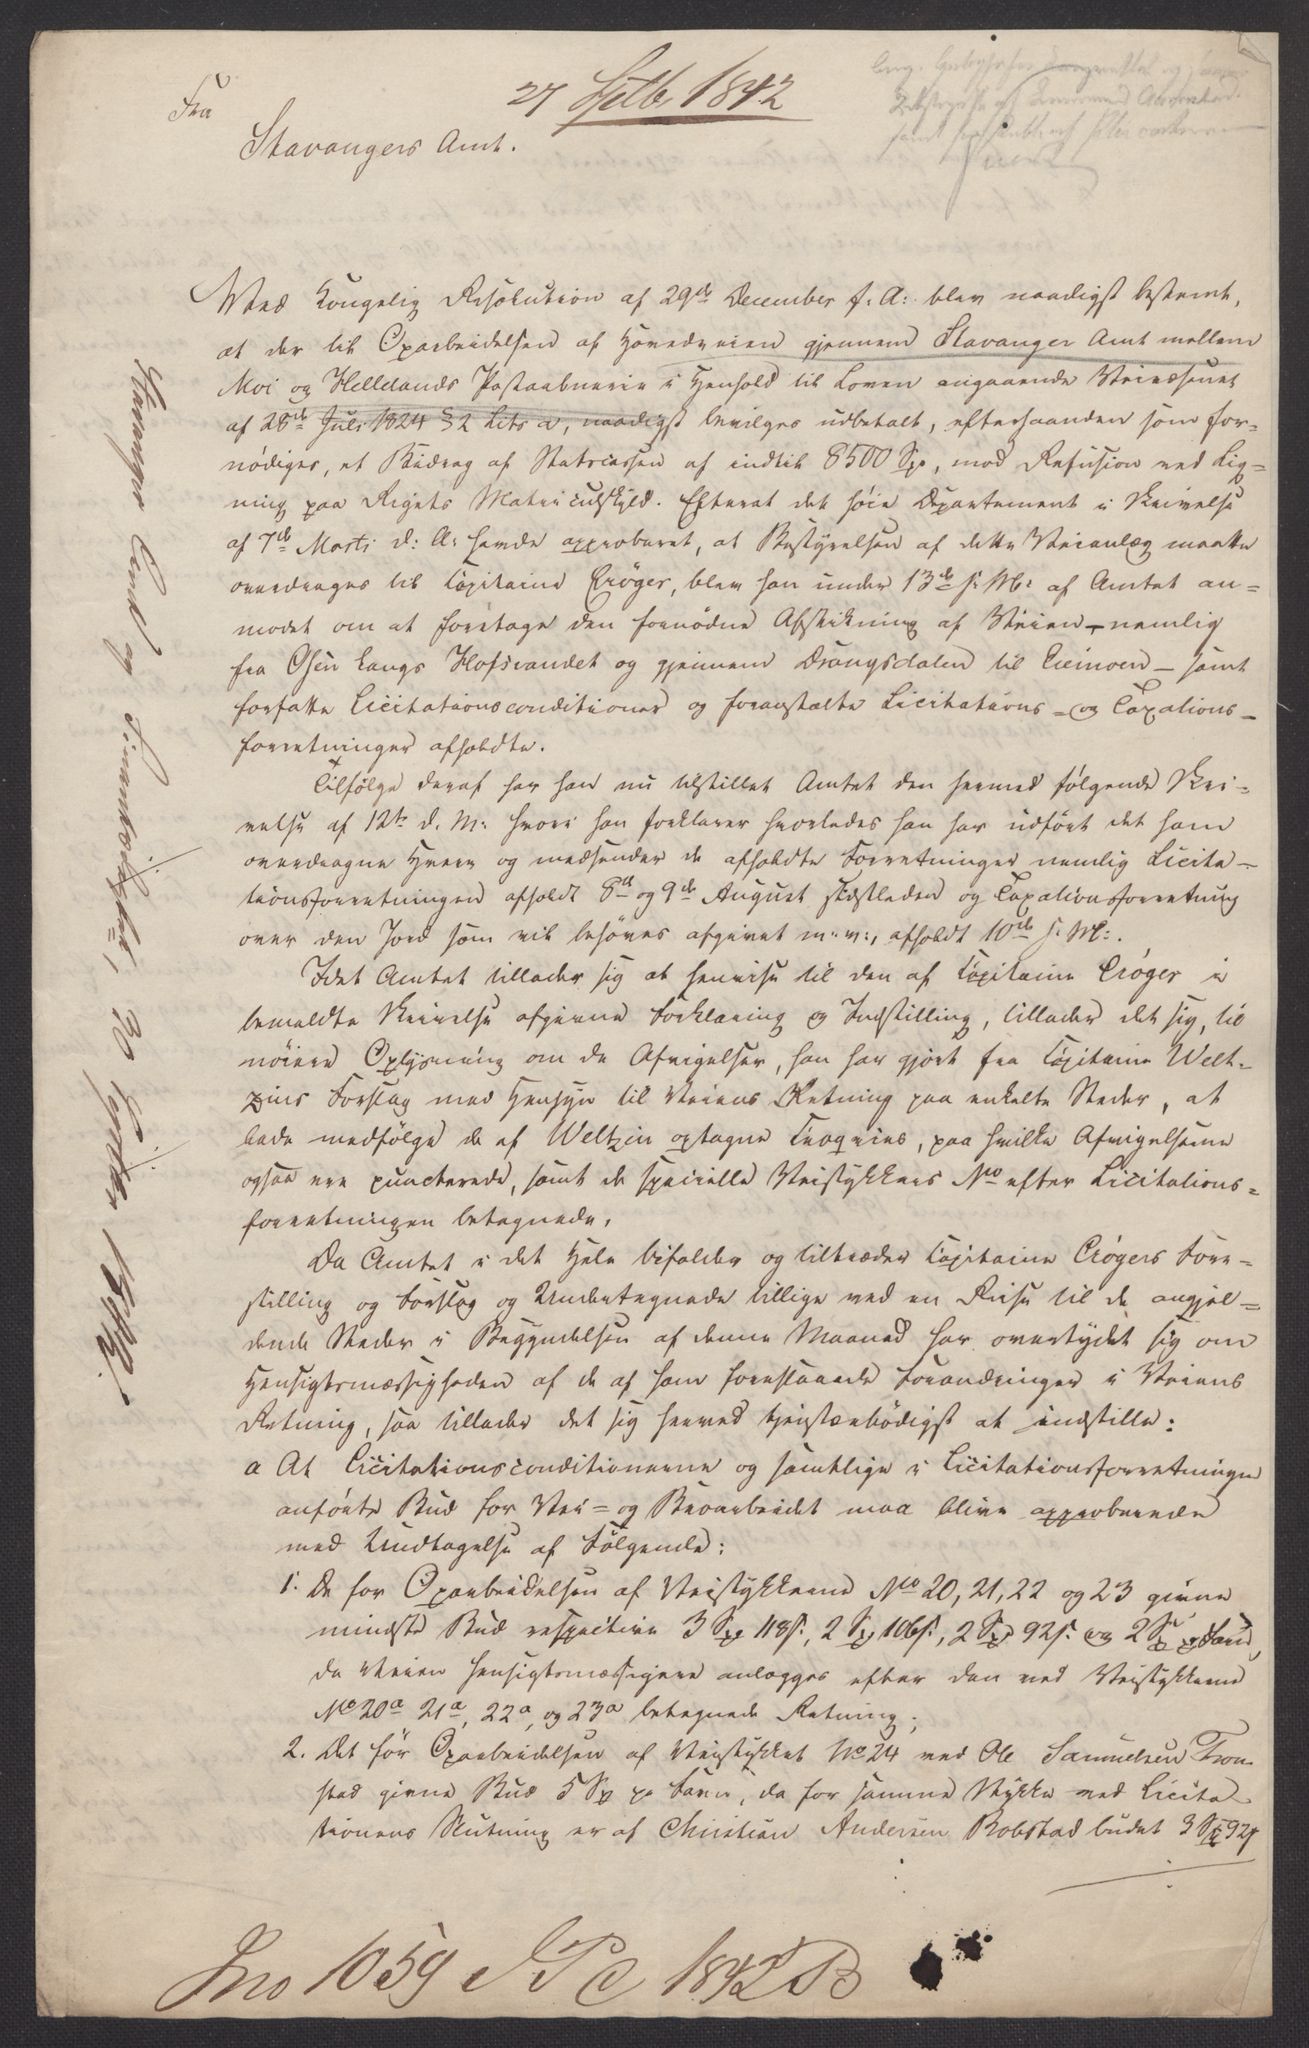 27 Septb. 1842
Fra
Stavangers Amt.
Ved Kongelig Resolution af 29de December f. A. blev naadigst bestemt,
at der til Oparbeidelsen af Hovedveien gjennem Stavanger Amt mellem
Moi og Hellelands Postaabnerie i Henhold til Loven angaaende Veivæsenet
af 28de Juli 1824 § 2 Litr a, naadigst bevilges udbetalt, efterhaanden som for-
nødiges, et Bidrag af Statscassen af indtil 8500 Sp, mod Refusion ved Lig-
ning paa Rigets Matriculskyld. Efterat det høie Departement i Skrivelse
af 7de Marti d: A: havde approberet, at Bestyrelsen af dette Veianlæg maatte
overdrages til Capitaine Crøger, blev han under 13de s: M: af Amtet an-
modet om at foretage den fornødne Afstikning af Veien - nemlig
fra Osen langs Hofsvandet og gjennem Drangsdalen til Eeimoen - samt
forfatte Licitationsconditioner og foranstalte Licitations- og Taxations-
forretninger afholdte.
Tilfølge deraf har han nu tilstillet Amtet den hermed følgende Skri-
velse af 12te d. M: hvori han forklarer hvorledes han har udført det ham
overdragne Hverv og medsender de afholdte Forretninger nemlig Licita-
tionsforretningen afholdt 8de og 9de August sidstleden og Taxationsforretning
over den Jord som vil behøves afgivet m. v., afholdt 10de s. M:.
Idet Amtet tillader sig at henvise til den af Capitaine Crøger i
bemeldte Skrivelse afgivne Forklaring og Indstilling, tillader det sig, til
nøiere Oplysning om de Afvigelser, han har gjort fra Capitaine Welt-
zins Forslag med Hensyn til Veiens Retning paa enkelte Steder, at
lade medfølge de af Weltzin optagne Croquies, paa hvilke Afvigelserne
ogsaa ere puncterede, samt de specielle Veistykkers No efter Licitations-
forretningen betegnede.
Da Amtet i det Hele bifalder og tiltræder Capitaine Crøgers Fore-
stilling og Forslag og Undertegnede tillige ved en Reise til de angjæl-
dende Steder i Begyndelsen af denne Maaned har overtydet sig om
Hensigtsmæssigheden af de af ham foreslaaede Forandringer i Veiens
Retning, saa tillader det sig herved tjenstærbødigst at indstille:
a At Licitationsconditionerne og samtlige i Licitationsforretningen
anførte Bud for Vei- og Broarbeidet maa blive approberede
med Undtagelse af Følgende:
1. De for Oparbeidelsen af Veistykkerne No 20, 21, 22 og 23 givne
mindste Bud respective 3 Sp 118 s., 2 Sp 106 s., 2 Sp 92 s. og 2 Sp pr Favn,
da Veien hensigtsmæssigere anlægges efter den ved Veistykkerne
No 20a 21a, 22a, og 23a betegnede Retning.
2. Det for Oparbeidelsen af Veistykket No 24 ved Ole Samuelsen Tron-
stad givne Bud 5 Sp pr Favn, da for samme Stykke ved Licita-
tionens Slutning er af Christian Andersen Robstad budet 3 Sp 92 s
Jno 1059 1842 B
Stavanger Amt og 30 Septbr 1842.